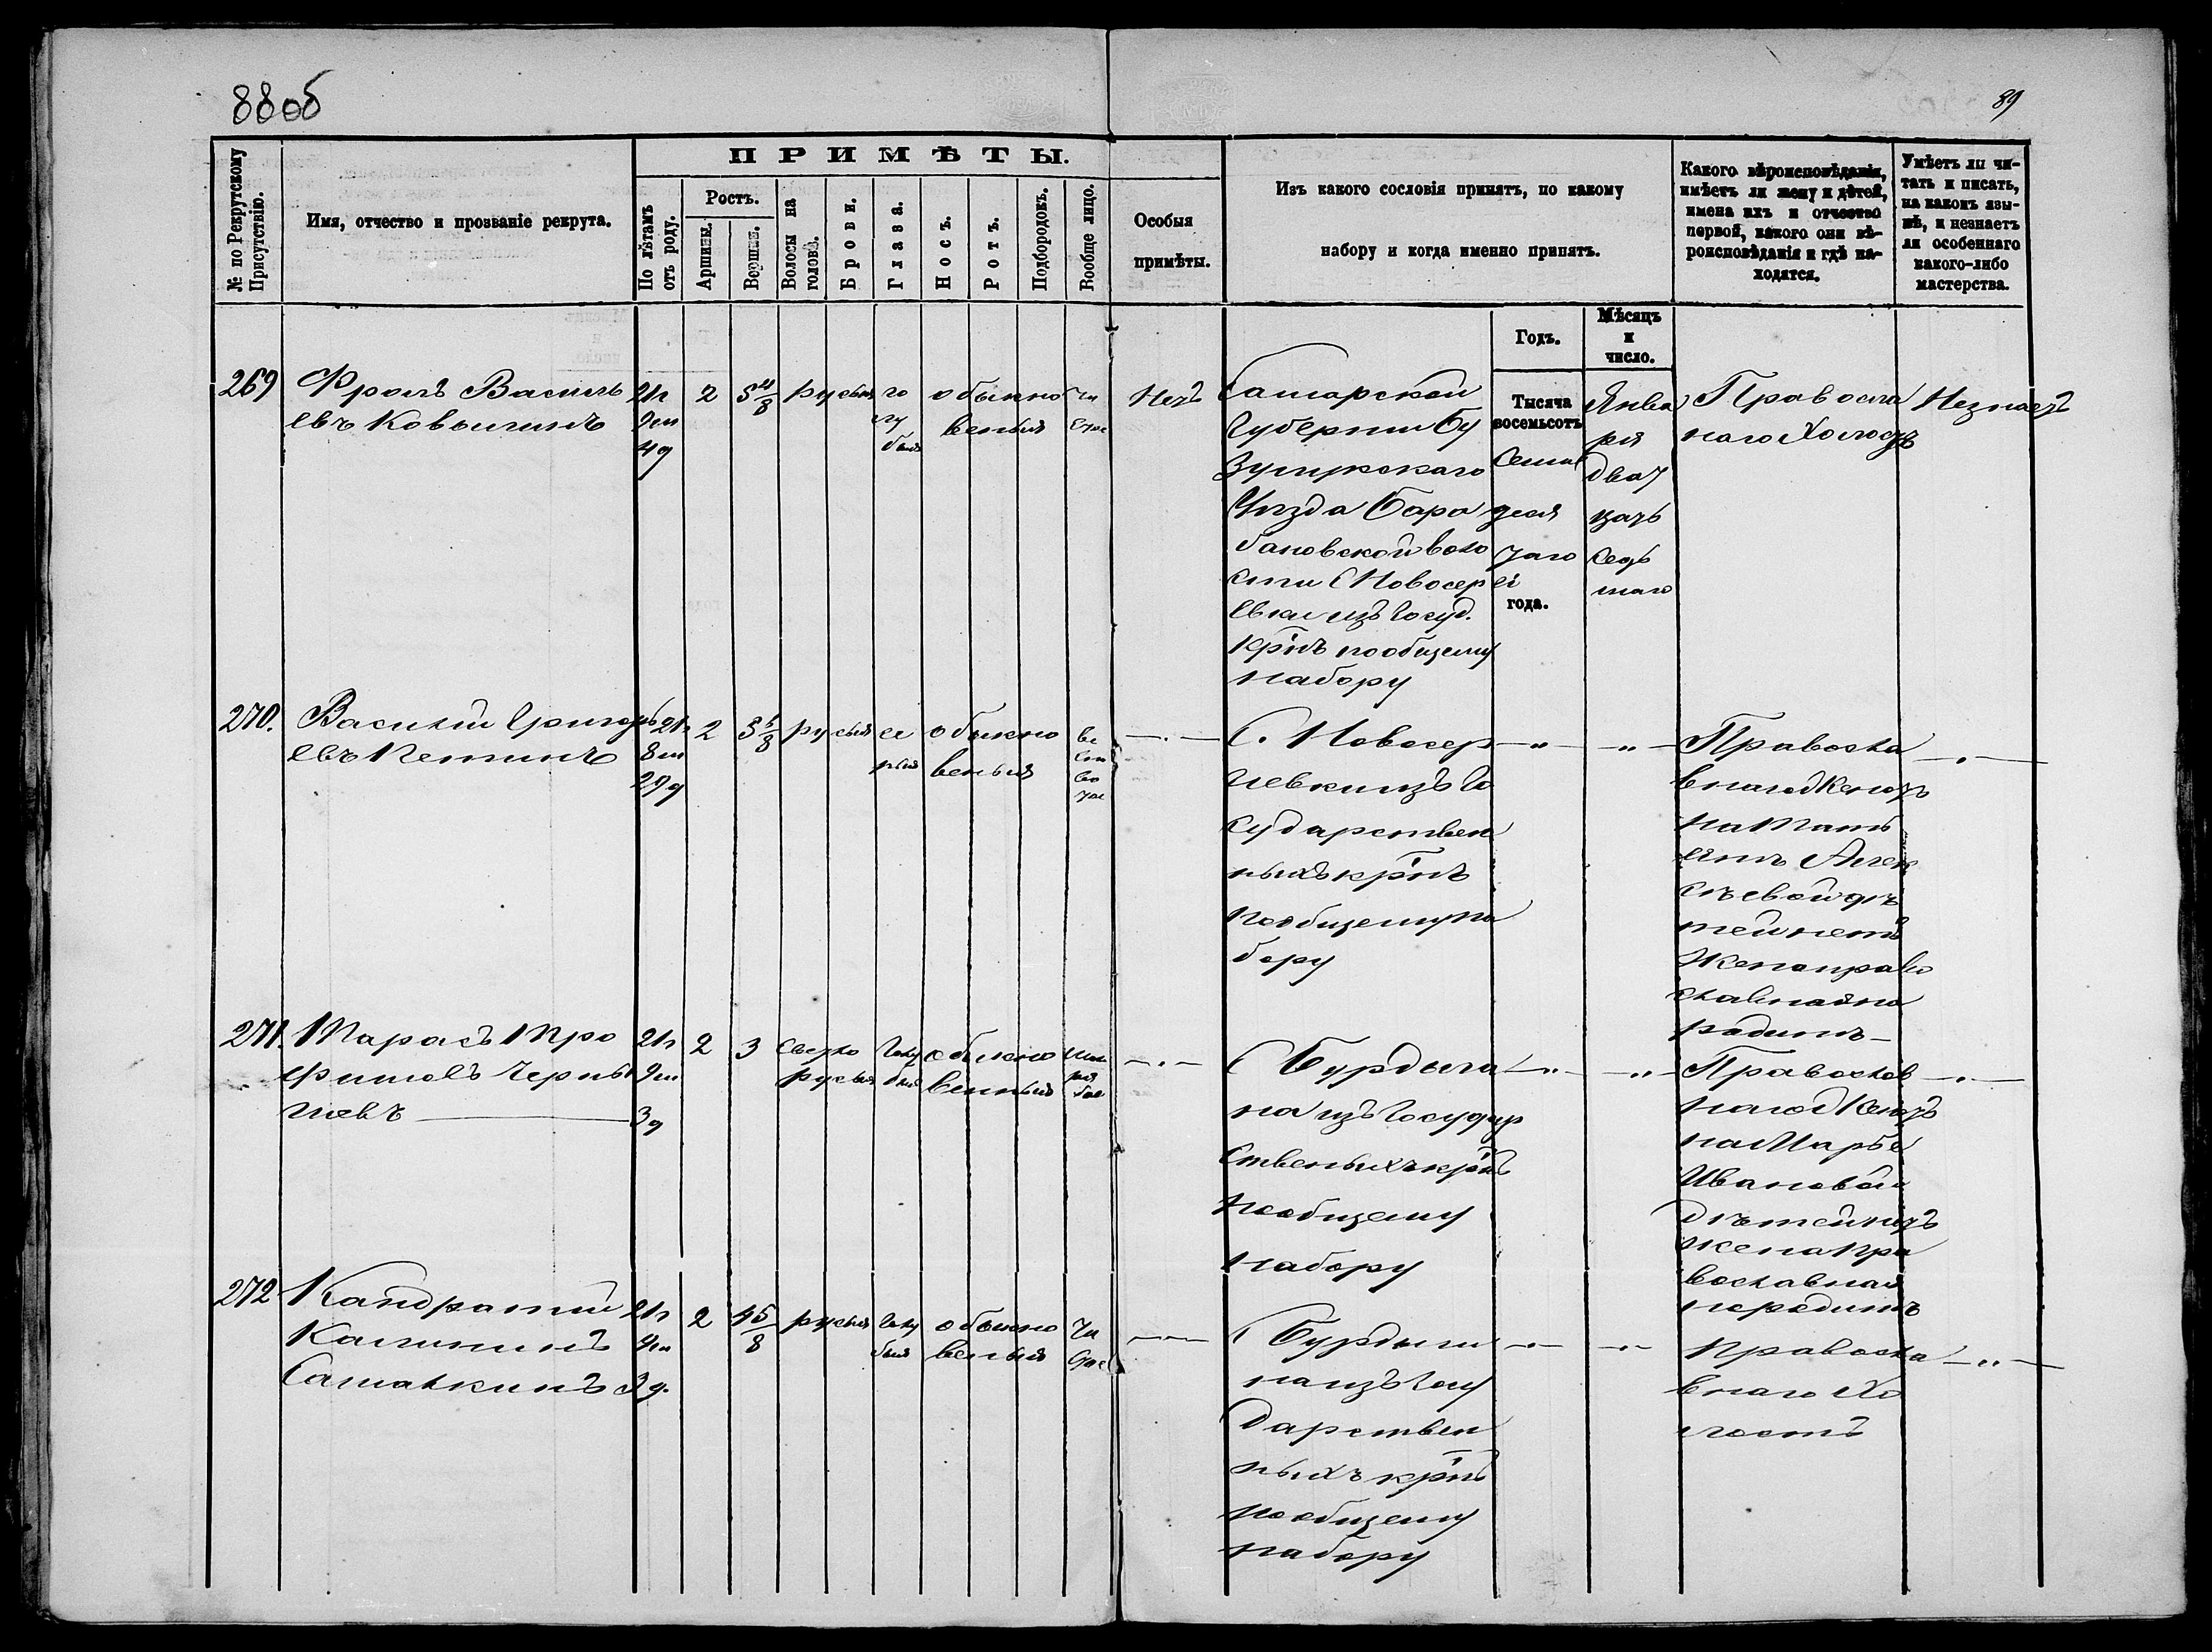 88об
89
№ по Рекрутскому Присутствію.
Имя, отчество и прозваніе рекрута.
ПРИМѢТЫ.
По лѣтамъ отъ роду.
Ростъ.
Аршины.
Вершки.
Волосы на головѣ.
Брови.
Глаза.
Носъ.
Ротъ.
Подбородокъ.
Вообще лицо.
Особыя
примѣты.
Изъ какого сословія принятъ, по какому
набору и когда именно принятъ.
Какого вѣроисповѣданія,
имѣетъ ли жену и дѣтей,
имена ихъ и отчество
первой, какого они вѣ-
роисповѣданія и гдѣ на-
ходятся.
Умѣетъ ли чи-
тать и писать,
на какомъ язы-
кѣ, и незнаетъ
ли особеннаго
какого-либо
мастерства.
Годъ.
Мѣсяцъ
и
число.
269
Фролъ Василь
евъ Ковылинъ
21л
9м
4д
2
3 4/8
русыя
го
лу
быя
обыкно
веныя
чи
стое
Нетъ
Самарской
Губернии Бу
зулукскаго
Уѣзда Бара
бановской воло
сти С Новосерги
евки изъ Госуд.
крнъ пообщему
набору
Тысяча
восемьсотъ
Семи
деся
таго
года.
Янва
ря
двад
цать
седь
маго
Православ
наго Холостъ
Незнаетъ
270.
Василий Григорь
евъ Петинъ
21л
8м
29д
2
3 5/8
русыя
се
рыя
обыкно
веныя
С. Новосер
гиевки изъ Го
сударствен
ныхъ крнъ
пообщему на
бору
Правосла
внаго Женатъ
на Тать
янѣ Алек
сѣевой дѣ
тей нетъ
Жена право
славная на
родинѣ
271.
Тарасъ Тро
фимовъ Черны
шевъ
21л
9м
3д
2
3
светло
русыя
голу
быя
обыкно
венныя
С Бурдыги
на изъ Государ
ственыхъ крнъ
пообщему
набору
Православ
наго Женатъ
на Марье
Ивановой
дѣтей нетъ
жена пра
вославная
народинѣ
272
Кандратий
Калининъ
Саматкинъ
21л
4м
3д.
2
4 5/8
русыя
голу
быя
обыкно
веныя
чи
стое
С Бурдыги
на изъ Госу
дарствен
ныхъ крнъ
пообщему
набору
Правосла
внаго Хо
лостъ